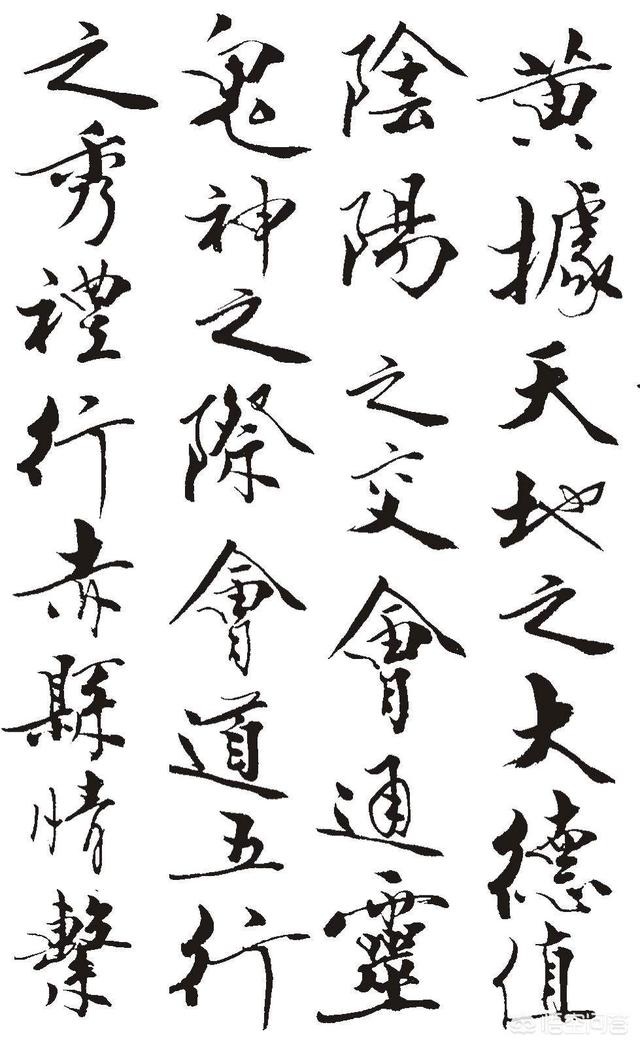 黄據天地之大德值
陰陽之交會通靈
鬼神之際會道五行
之秀禮行赤縣情繫
悟空问答